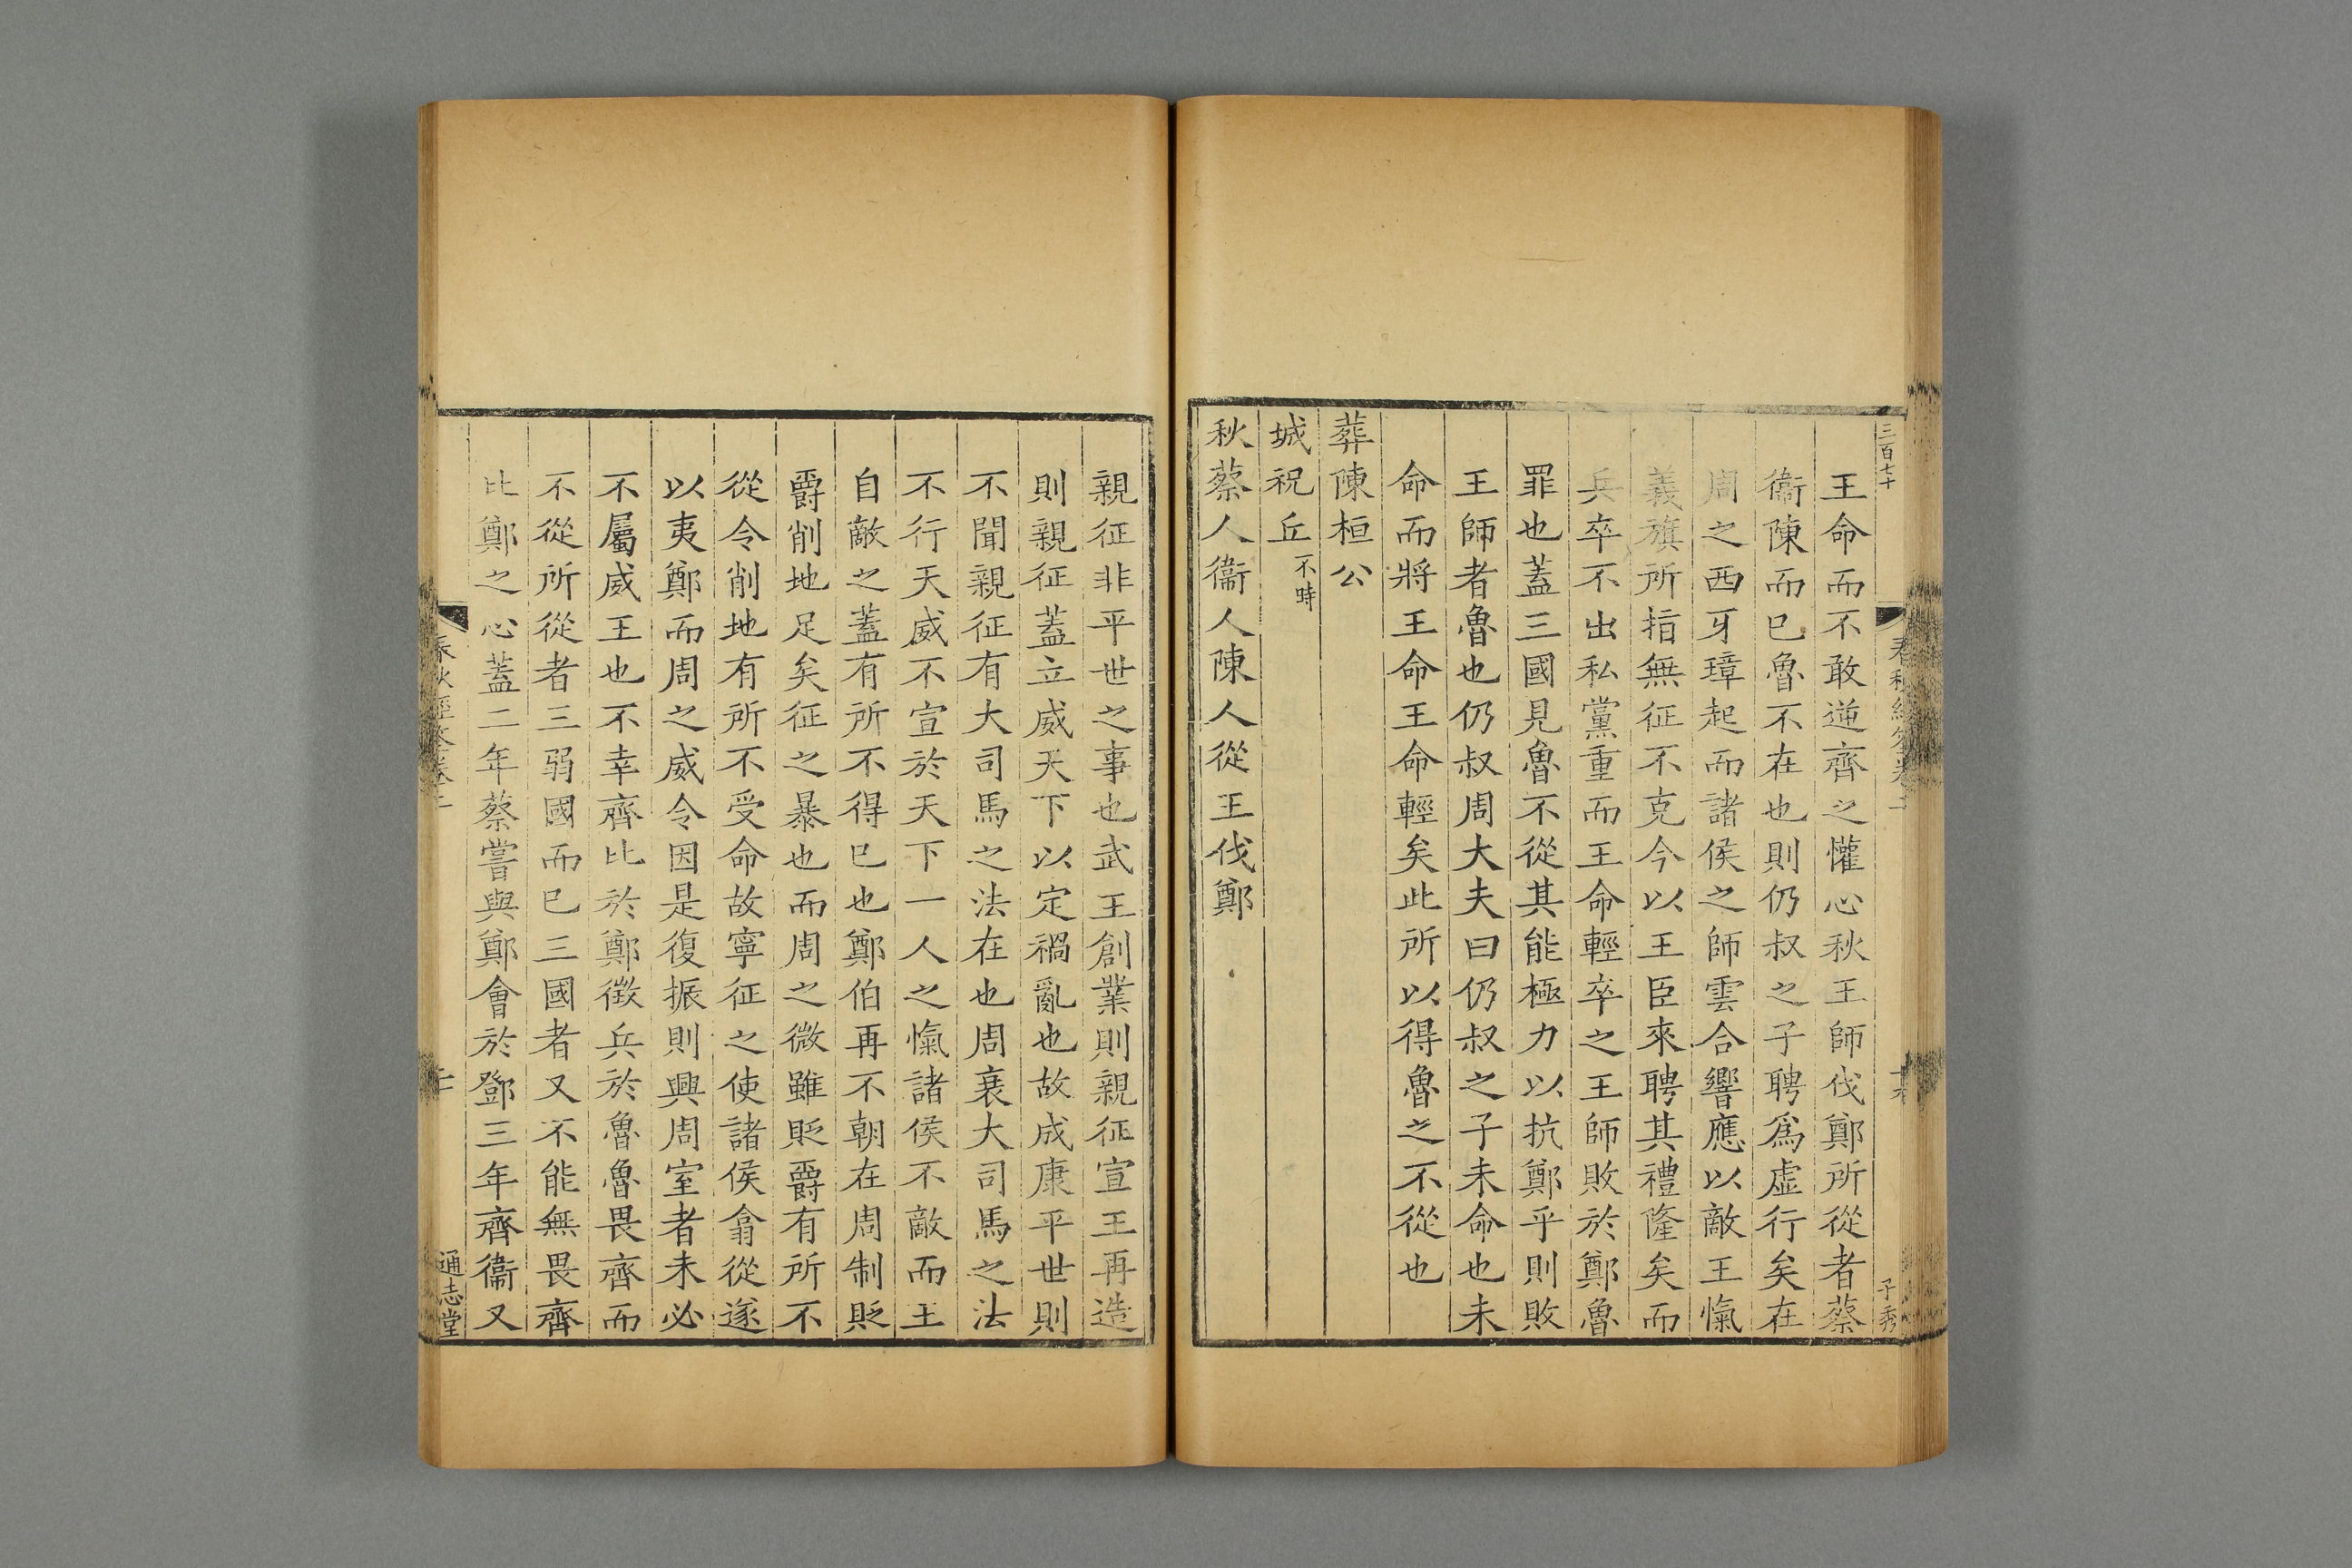 三百七十
王命而不敢逆齊之懽心秋王師伐鄭所從者蔡
衞陳而已魯不在也則仍叔之子聘爲虛行矣在
周之西牙璋起而諸侯之師雲合響應以敵王愾
義旗所指無征不克今以王臣來聘其禮隆矣而
兵卒不出私黨重而王命輕卒之王師敗於鄭魯
罪也蓋三國見魯不從其能極力以抗鄭乎則敗
王師者魯也仍叔周大夫曰仍叔之子未命也未
命而將王命王命輕矣此所以得魯之不從也
葬陳桓公
城祝丘不時
秋蔡人衞人陳人從王伐鄭
子秀
親征非平世之事也武王創業則親征宣王再造
則親征蓋立威天下以定禍亂也故成康平世則
不聞親征有大司馬之法在也周衰大司馬之法
不行天威不宣於天下一人之愾諸侯不敵而王
自敵之蓋有所不得已也鄭伯再不朝在周制貶
爵削地足矣征之暴也而周之微雖貶爵有所不
從令削地有所不受命故寧征之使諸侯翕從遂
以夷鄭而周之威令因是復振則興周室者未必
不屬威王也不幸齊比於鄭徴兵於魯魯畏齊而
不從所從者三弱國而已三國者又不能無畏齊
比鄭之心蓋二年蔡嘗與鄭會於鄧三年齊衞又
通志堂